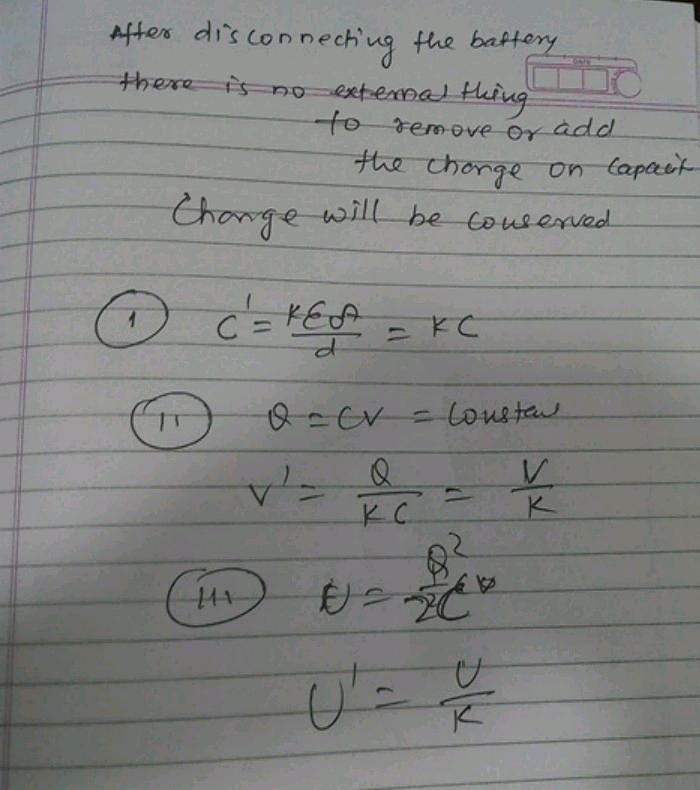 After disconnecting the battery
DATE
there is no external thing
to remove or add
the charge on capacit
Charge will be conserved
1 C' = KE0A/d = KC
11 Q = CV = Constan
V' = Q/KC = V/K
111 U = Q²/2C
U' = U/K